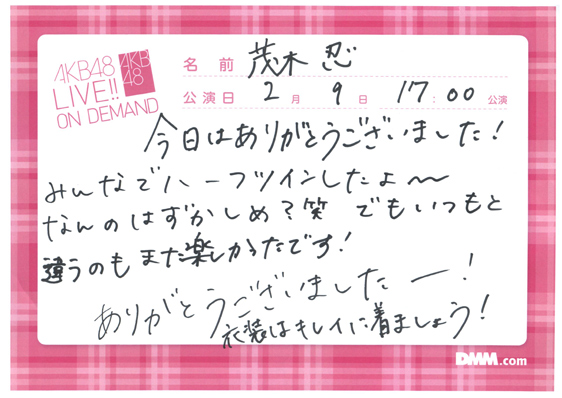 AKB48
LIVE!!
ON DEMAND
AKB
48
名前 茂木忍
公演日 2月9日 17:00公演
今日はありがとうございました!
みんなでハーフツインしたよ〜
なんのはずかしめ?笑 でもいつもと
違うのもまた楽しかったです!
ありがとうございましたー!
衣装はキレイに着ましょう!
DMM.com